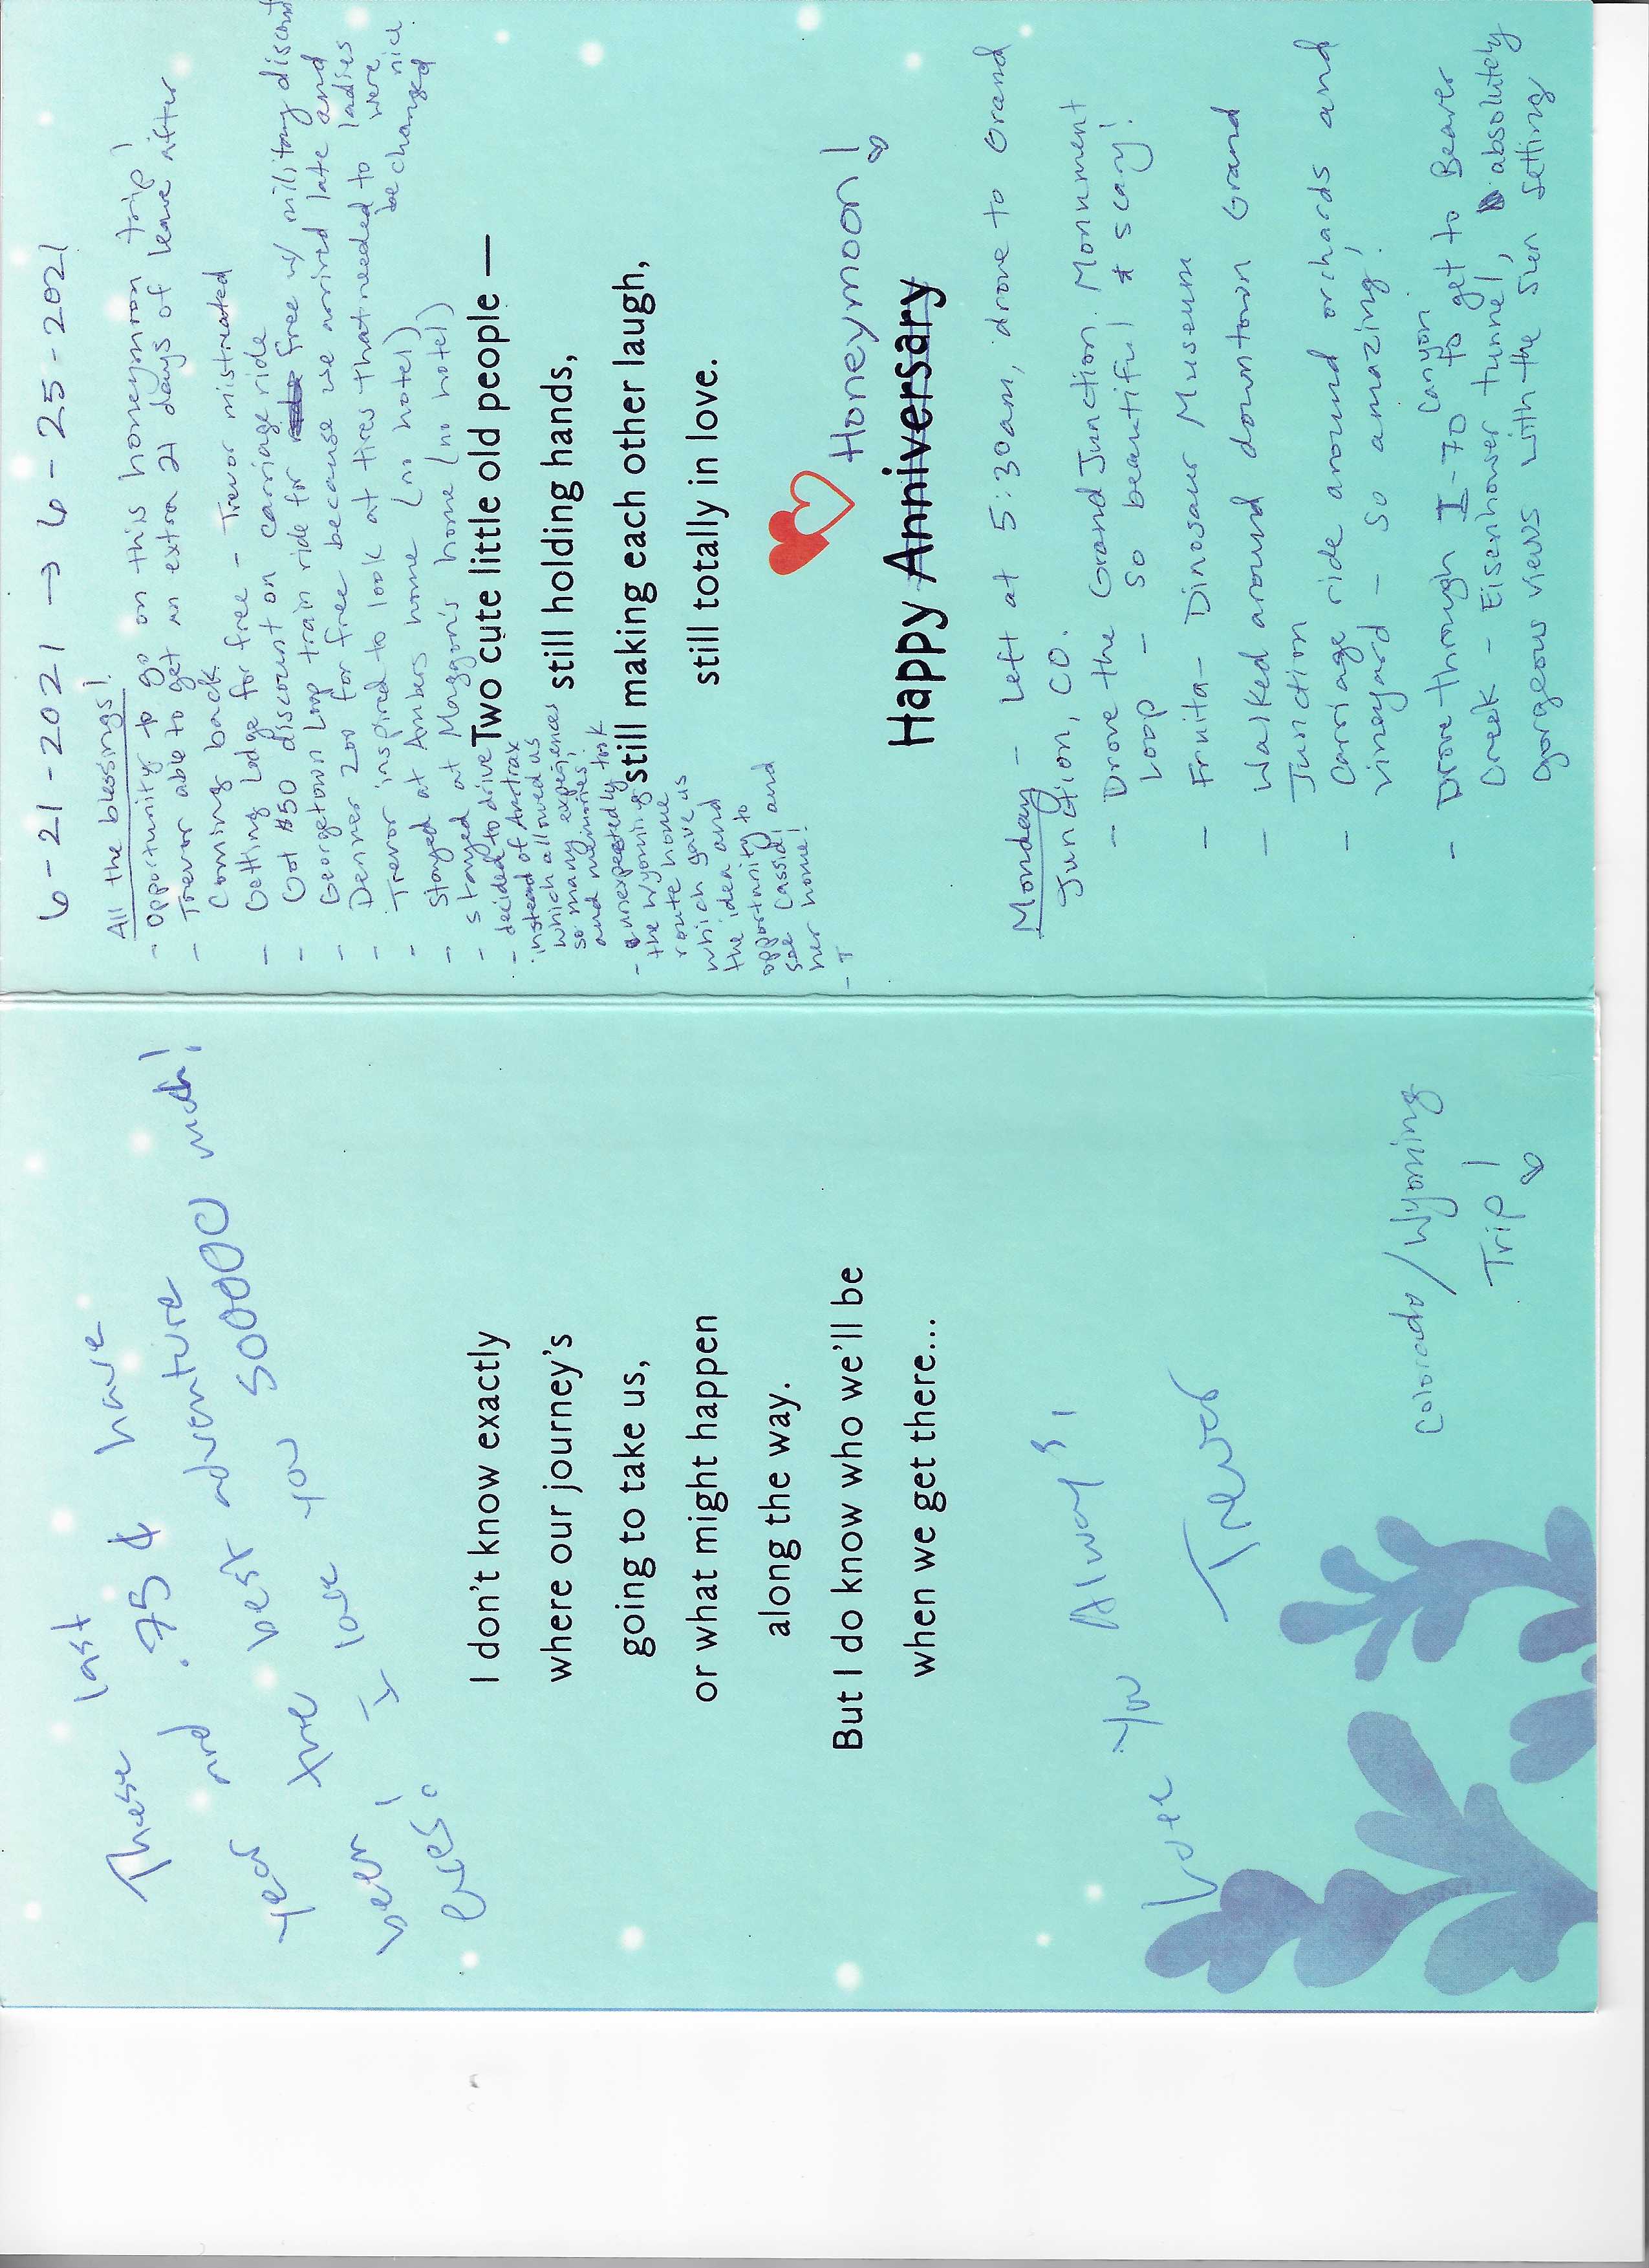 These last
.75 & have
year and best adventure
been the love you soooo much!
I
ever!
I don't know exactly
where our journey's
going to take us,
or what might happen
along the way.
But I do know who we'll be
when we get there...
Love you Alway's,
Trevor
Colorado/Wyoming
Trip!
6-21-2021 → 6-25-2021
All the blessings!
- Opportunity to go on this honeymoon trip!
- Trevor able to get an extra 21 days of leave after
coming back
- Getting Lodge for free - Trevor mistreated
- Got $50 discount on carriage ride
- Georgetown Loop train ride for free w/ military discount
- Denver Zoo for free because we arrived late and ladies were nice
- Trevor inspired to look at tires that needed to be changed
- Stayed at Ambers home (no hotel)
- stayed at Maggon's home (no hotel)
- decided to drive
instead of Amtrax
which allowed us
so many experiences
and memories
- unexpectedly took
the Wyoming
route home
which gave us
the idea and
opportunity to
see Cassidi and
her home!
- T
Two cute little old people —
still holding hands,
still making each other laugh,
still totally in love.
Honeymoon!
Happy Anniversary
Monday - Left at 5:30am, drove to Grand
Junction, CO.
- Drove the Grand Junction Monument
Loop - so beautiful & scary!
- Fruita - Dinosaur Museum
- Walked around downtown Grand
Junction
- Carriage ride around orchards and
vineyard - so amazing!
- Drove through I-70 canyon to get to Beaver
Creek - Eisenhower tunnel, absolutely
gorgeous views with the sun setting